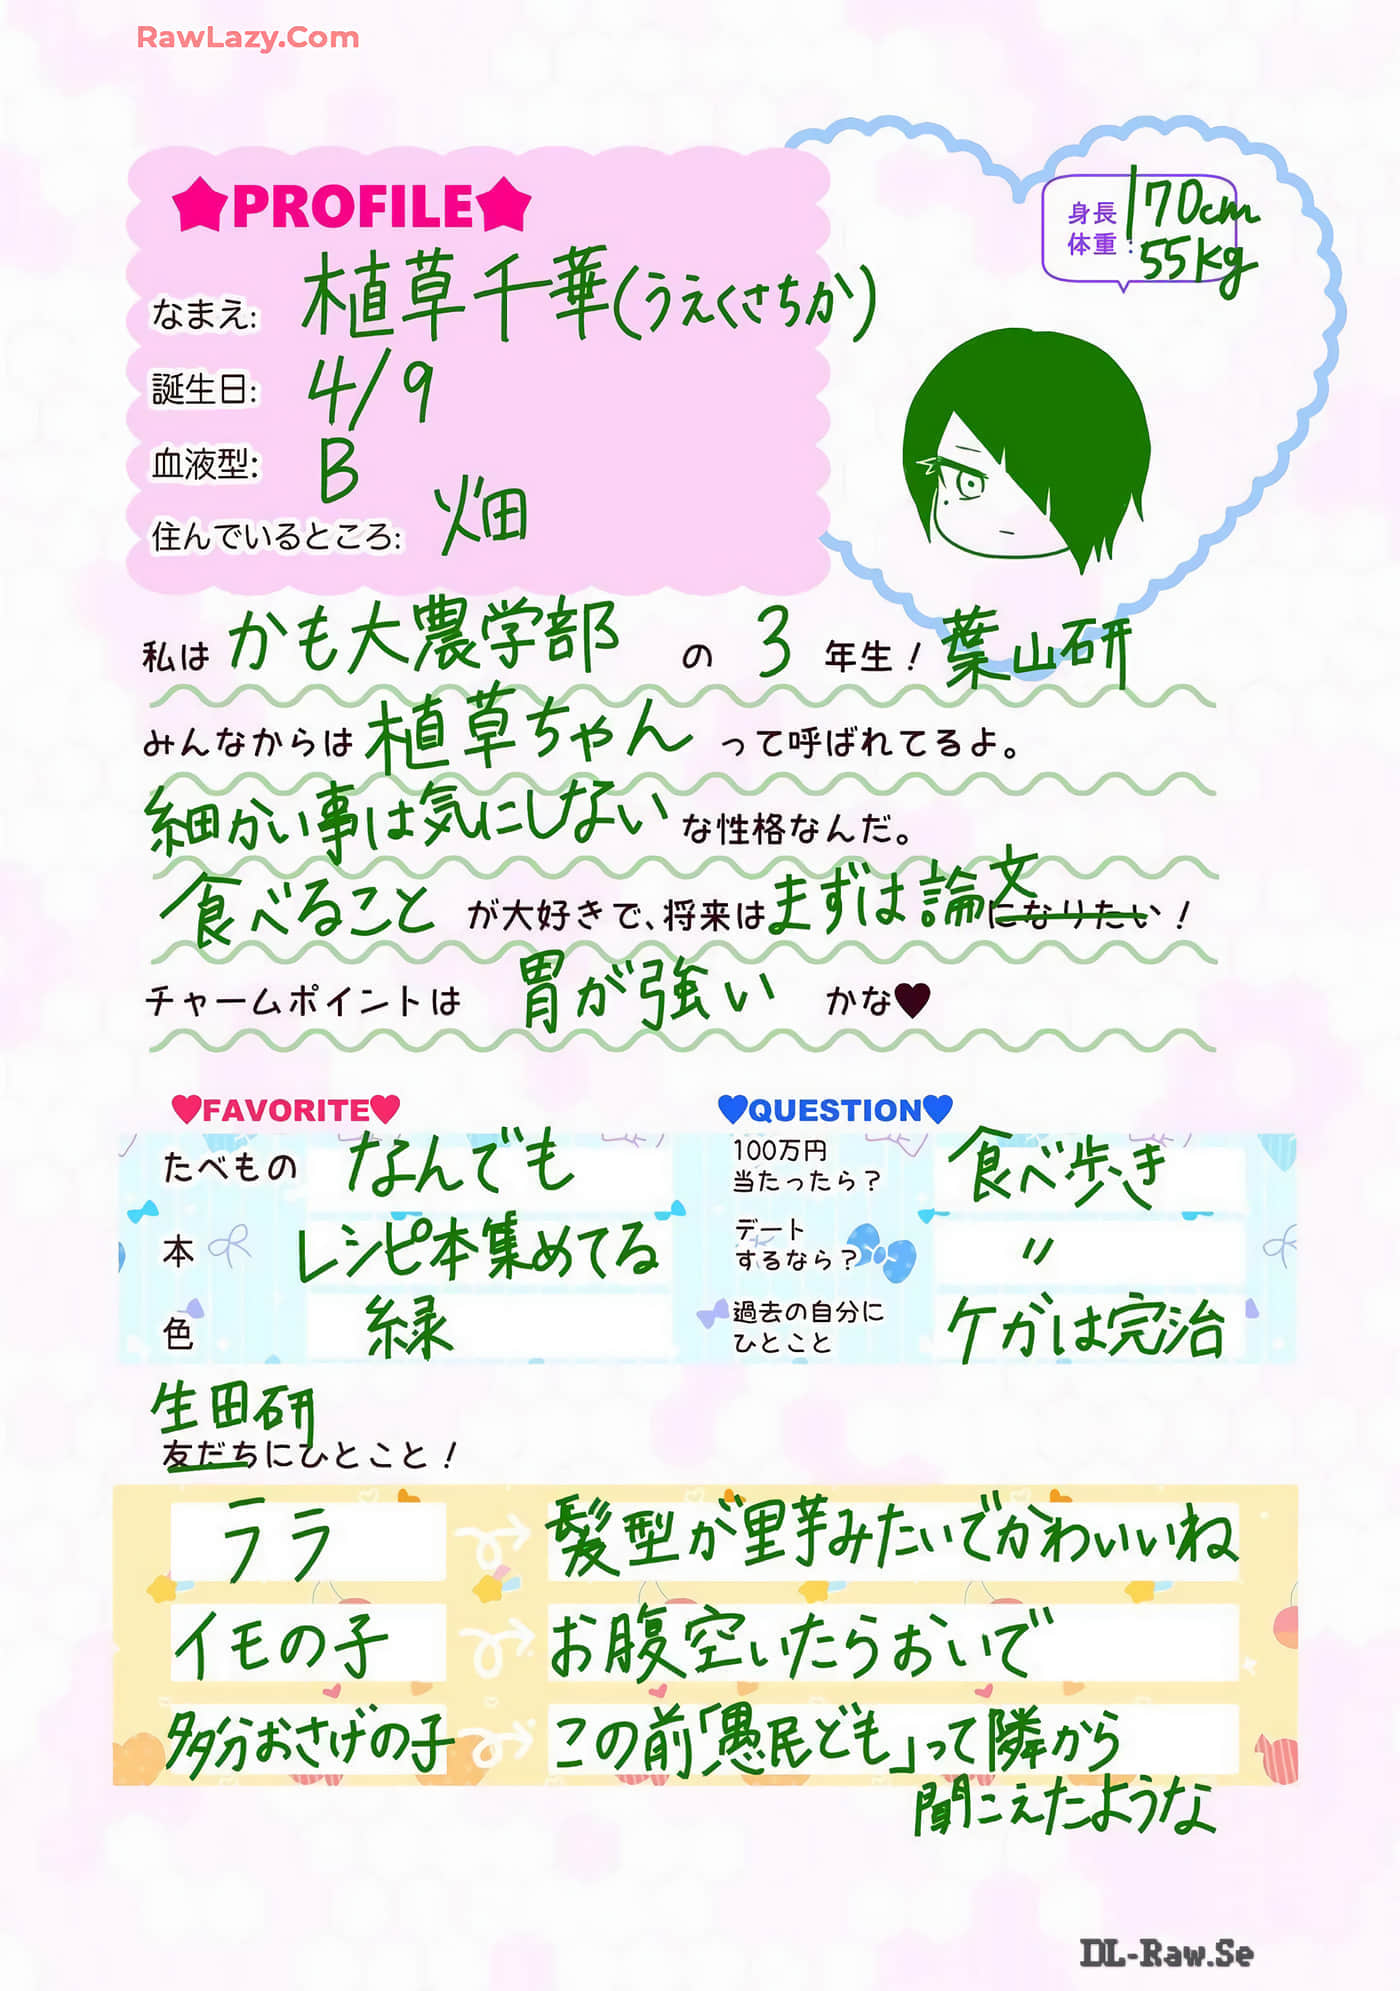 RawLazy.Com
★PROFILE★
身長 170cm
体重: 55kg
なまえ: 植草千華(うえくさちか)
誕生日: 4/9
血液型: B
住んでいるところ: 畑
私は かも大農学部 の 3 年生! 葉山研
みんなからは 植草ちゃん って呼ばれてるよ。
細かい事は気にしない な性格なんだ。
食べること が大好きで、将来は まずは論文 になりたい!
チャームポイントは 胃が強い かな♥
♥FAVORITE♥
たべもの なんでも
本 レシピ本集めてる
色 緑
♥QUESTION♥
100万円
当たったら? 食べ歩き
デート
するなら? 〃
過去の自分に
ひとこと ケガは完治
生田研
友だちにひとこと!
ララ 髪型が里芋みたいでかわいいね
イモの子 お腹空いたらおいで
多分おさげの子 この前「愚民ども」って隣から
聞こえたような
DL-Raw.Se